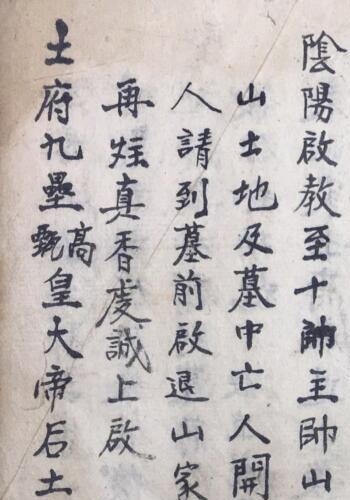 陰陽啟教至十帥主帥山
山土地及墓中亡人開
人請到墓前啟退山家
再炷真香虔誠上啟
土府九壘高皇大帝后土